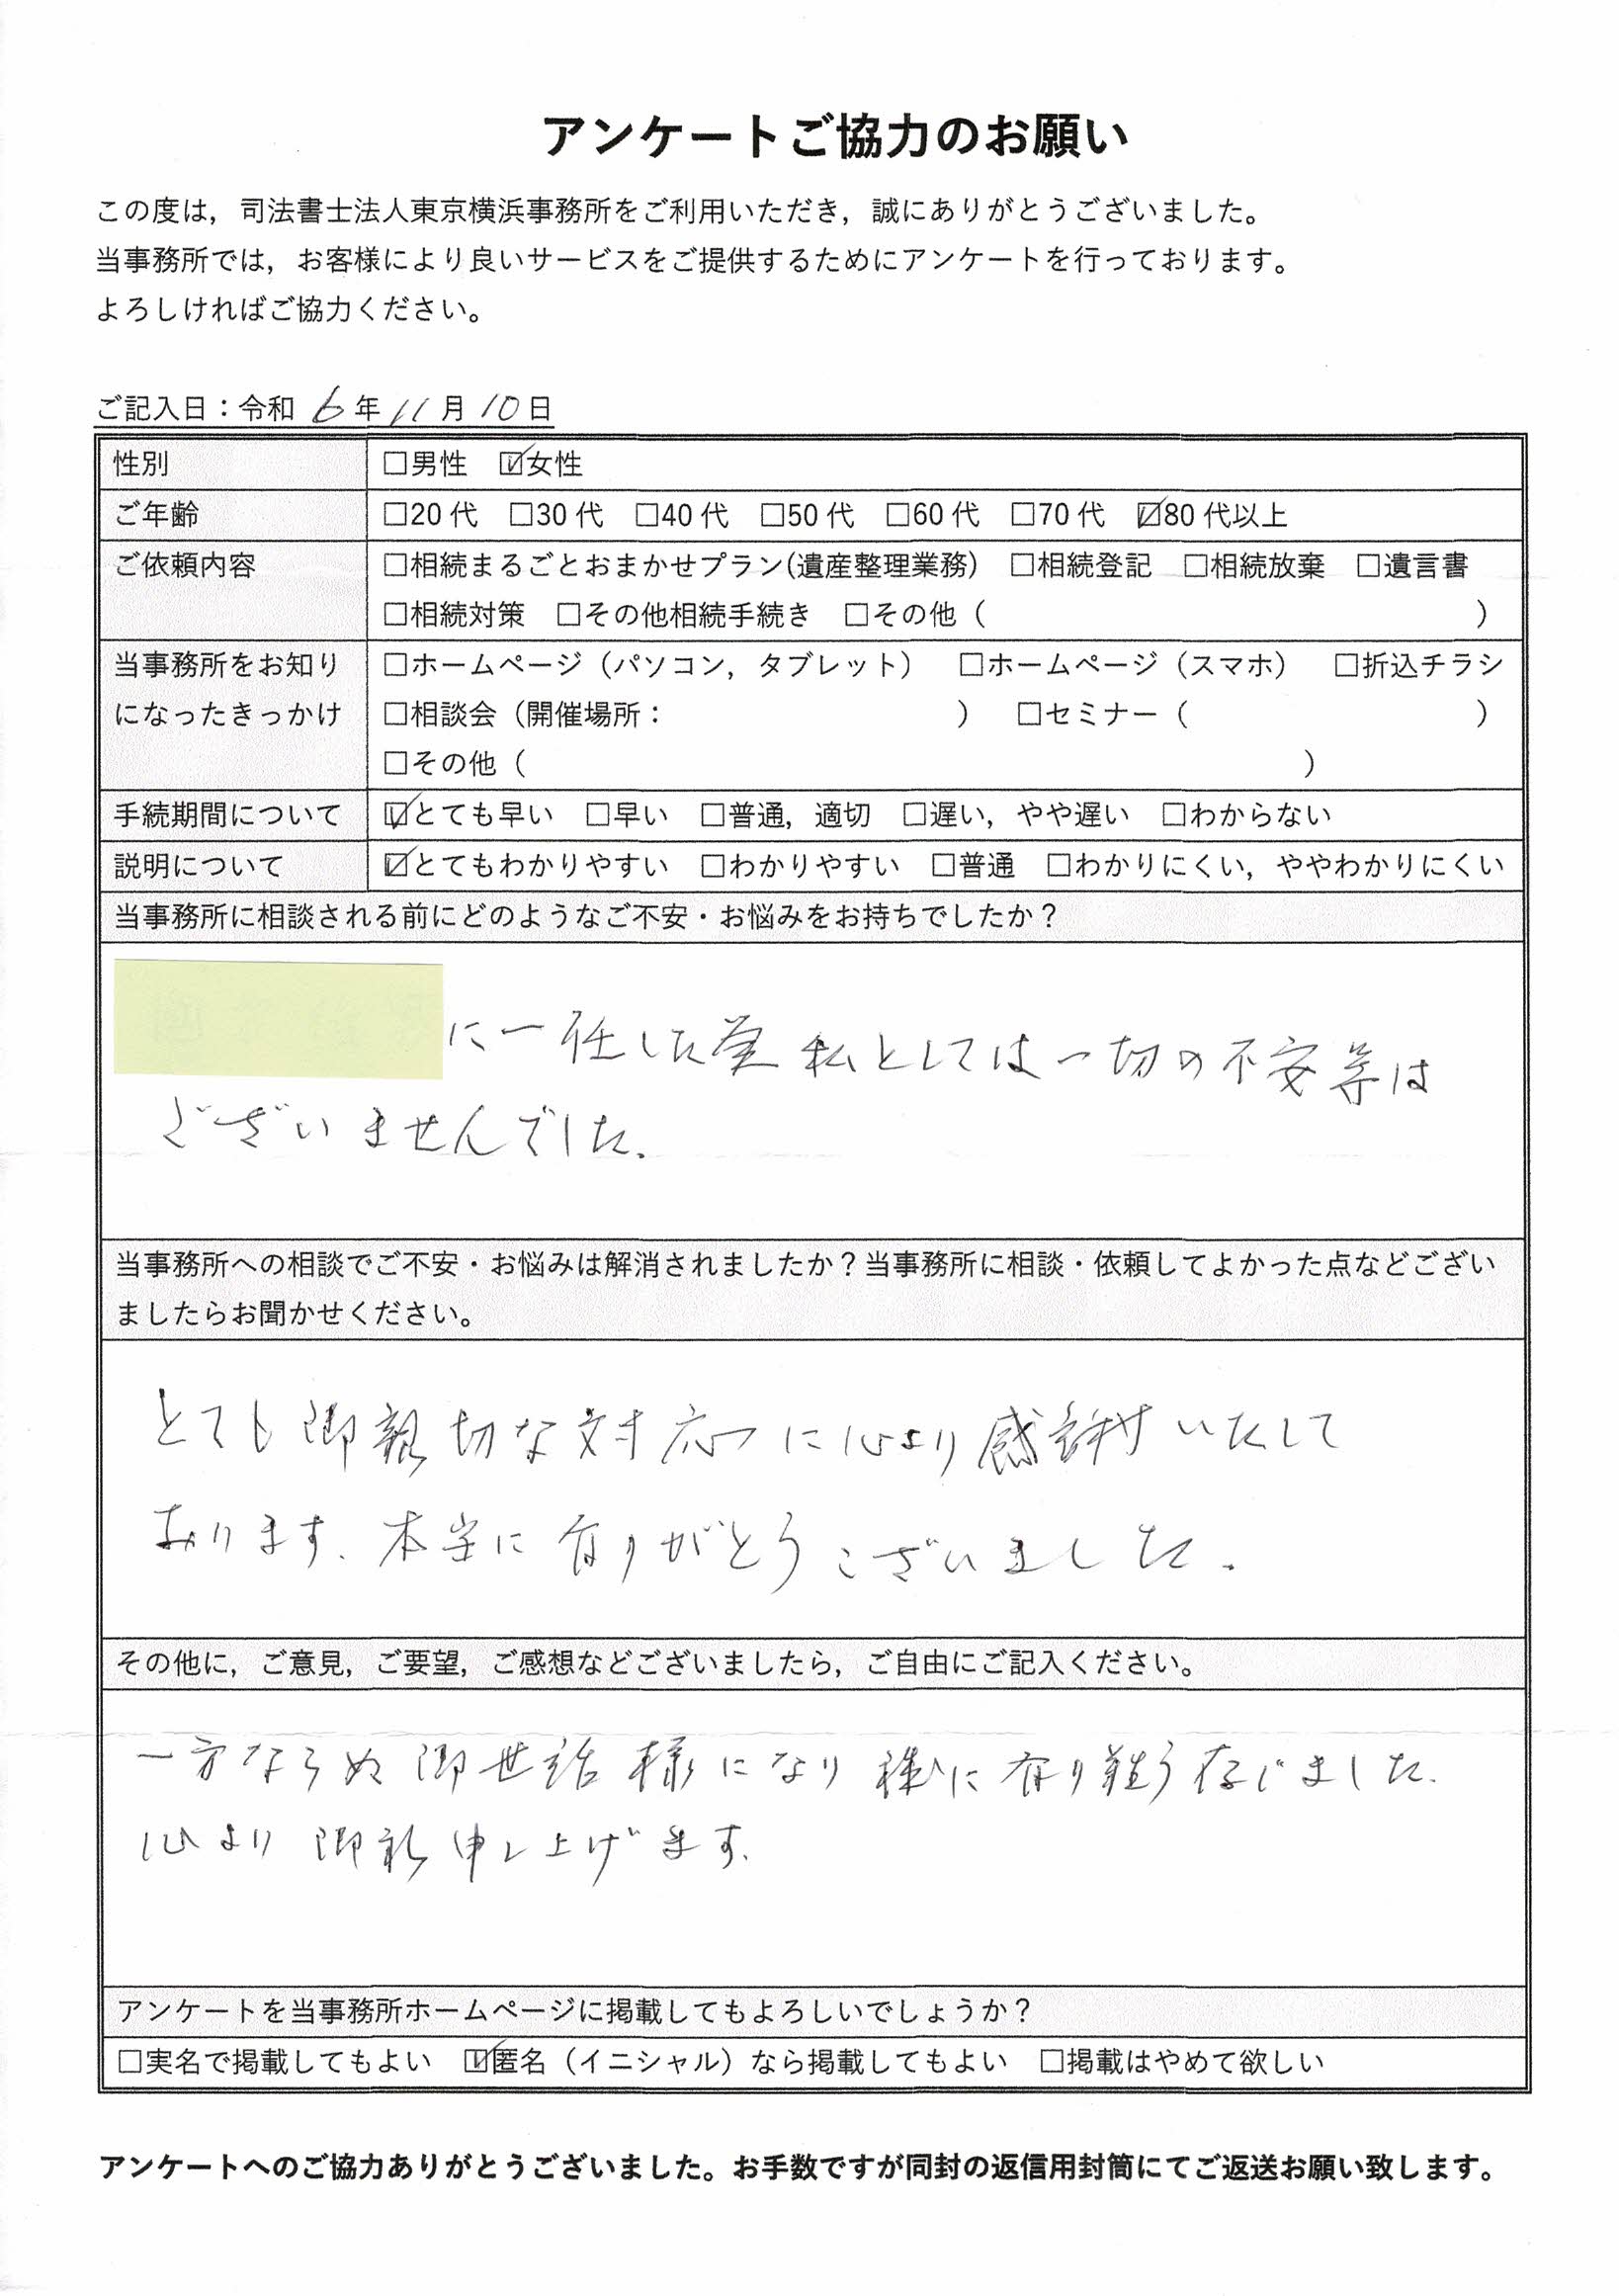 アンケートご協力のお願い
この度は，司法書士法人東京横浜事務所をご利用いただき，誠にありがとうございました。
当事務所では，お客様により良いサービスをご提供するためにアンケートを行っております。
よろしければご協力ください。
ご記入日：令和 6 年 11 月 10 日
性別 □男性 ☑女性
ご年齢 □20代 □30代 □40代 □50代 □60代 □70代 ☑80代以上
ご依頼内容 □相続まるごとおまかせプラン(遺産整理業務) □相続登記 □相続放棄 □遺言書
□相続対策 □その他相続手続き □その他（ ）
当事務所をお知り □ホームページ（パソコン，タブレット） □ホームページ（スマホ） □折込チラシ
になったきっかけ □相談会（開催場所： ） □セミナー（ ）
□その他（ ）
手続期間について ☑とても早い □早い □普通，適切 □遅い，やや遅い □わからない
説明について ☑とてもわかりやすい □わかりやすい □普通 □わかりにくい，ややわかりにくい
当事務所に相談される前にどのようなご不安・お悩みをお持ちでしたか？
に一任した 私としては一切の不安等は
ございませんでした.
当事務所への相談でご不安・お悩みは解消されましたか？当事務所に相談・依頼してよかった点などござい
ましたらお聞かせください。
とても御親切な対応に心より感謝いたして
おります. 本当に有りがとうございました.
その他に，ご意見，ご要望，ご感想などございましたら，ご自由にご記入ください。
一方ならぬ御世話様になり 誠に有り難う存じました.
心より御礼申し上げます.
アンケートを当事務所ホームページに掲載してもよろしいでしょうか？
□実名で掲載してもよい ☑匿名（イニシャル）なら掲載してもよい □掲載はやめて欲しい
アンケートへのご協力ありがとうございました。お手数ですが同封の返信用封筒にてご返送お願い致します。